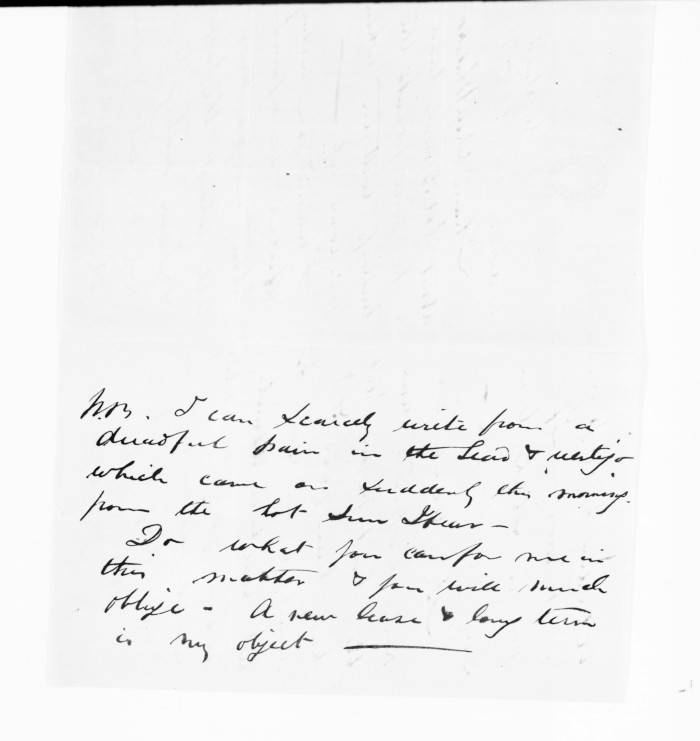 N.B. I can scarcely write from a
dreadful pain in the head & vertigo
which came on suddenly this morning
from the hot Sun I fear –
Do what you can for me in
this matter & you will much
oblige – A new lease & long term
is my object